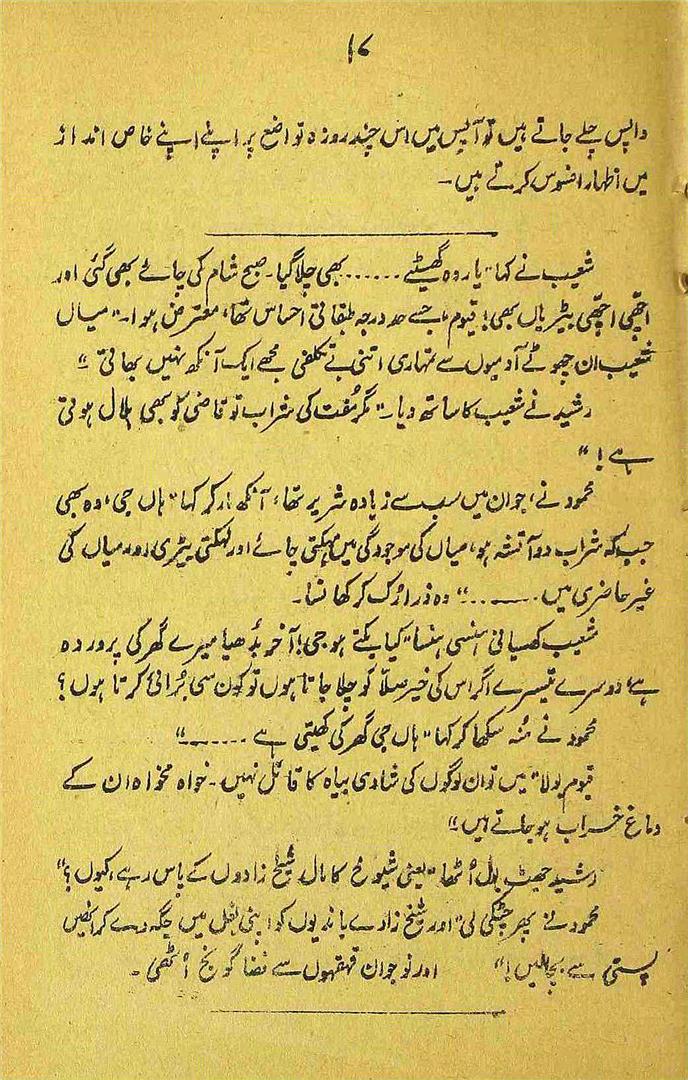 ۱۷
واپس چلے جاتے ہیں تو آپس میں اس چند روزہ تواضع پر اپنے اپنے خاص انداز
میں اظہار افسوس کرتے ہیں۔
شعیب نے کہا "یار وہ گھسیٹے ...... بھی چلا گیا۔ صبح شام کی چائے بھی گئی اور
اچھی اچھی بیٹریاں بھی! قیوم، جسے حد درجہ طبقاتی احساس تھا، معترض ہوا۔ "میاں
شعیب ان چھوٹے آدمیوں سے تمہاری اتنی بے تکلفی مجھے ایک آنکھ نہیں بھاتی"
رشید نے شعیب کا ساتھ دیا۔ "مگر مُفت کی شراب تو قاضی کو بھی حلال ہوتی
ہے!"
محمود نے، جو ان میں سب سے زیادہ شریر تھا، آنکھ مار کر کہا "ہاں جی، وہ بھی
جب کہ شراب دو آتشہ ہو، میاں کی موجودگی میں مہکتی چائے اور لہکتی بیٹری اور میاں کی
غیر حاضری میں ......" وہ ذرا رُک کر کھانسا۔
شعیب کھسیانی ہنسی ہنسا "کیا بکتے ہو جی! آخر بُڑھیا میرے گھر کی پروردہ
ہے، دوسرے تیسرے اگر اس کی خیر صلّا کو چلا جاتا ہوں تو کون سی بُرائی کرتا ہوں؟
محمود نے مُنہ سکھا کر کہا "ہاں جی گھر کی کھیتی ہے ......"
قیوم بولا "میں تو ان لوگوں کی شادی بیاہ کا قائل نہیں۔ خواہ مخواہ ان کے
دماغ خراب ہو جاتے ہیں"
رشید جھٹ بول اُٹھا "یعنی شیوخ کا مال شیخ زادوں کے پاس رہے، کیوں؟"
محمود نے پھر چٹکی لی "اور شیخ زادے باندیوں کو اپنی بغل میں جگہ دے کر انھیں
پستی سے بچالیں!" اور نوجوان قہقہوں سے فضا گونج اُٹھی۔